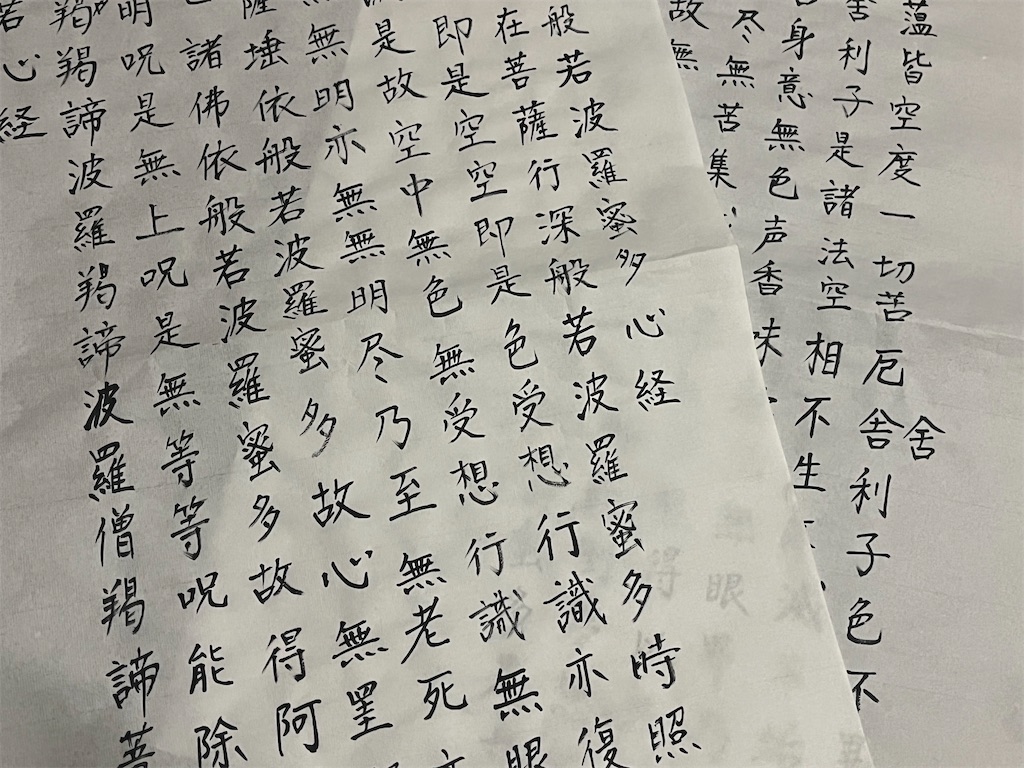 薀皆空度一切苦厄舎利子色不
舍
舎利子是諸法空相不生
身意無色声香味
尽無苦集
故無
般若波羅蜜多心経
在菩薩行深般若波羅蜜多時照
即是空空即是色受想行識亦復
是故空中無色無受想行識無眼
無明亦無無明尽乃至無老死亦
薩埵依般若波羅蜜多故心無罣
諸佛依般若波羅蜜多故得阿
明呪是無上呪是無等等呪能除
羯羯諦波羅羯諦波羅僧羯諦菩
若心経